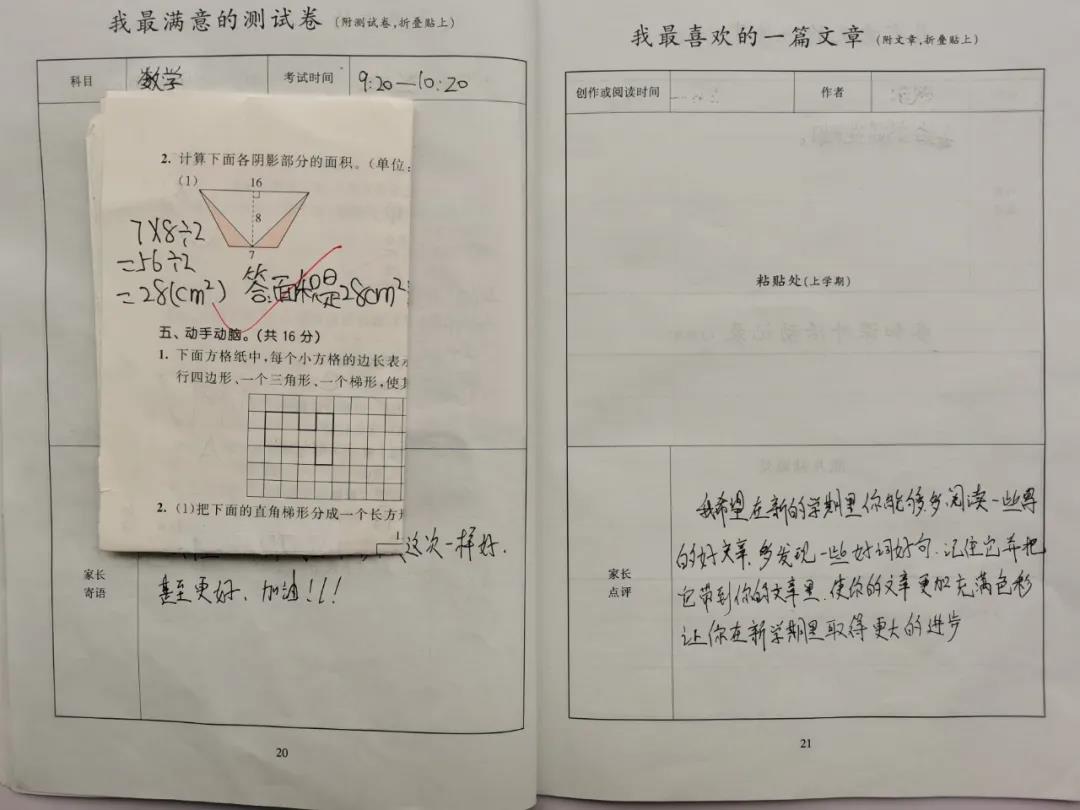 我最满意的测试卷 (附测试卷,折叠贴上)
科目 数学 考试时间 9:20—10:20
2. 计算下面各阴影部分的面积。(单位:
(1)
16
8
7
7×8÷2
=56÷2
=28(cm²) 答:面积是28cm²
五、动手动脑。(共 16 分)
1. 下面方格纸中,每个小方格的边长表
行四边形、一个三角形、一个梯形,使
2. (1)把下面的直角梯形分成一个长方
这次一样好.
家长
寄语
甚至更好. 加油!!!
20
我最喜欢的一篇文章 (附文章,折叠贴上)
创作或阅读时间 作者
粘贴处(上学期)
家长
点评
我希望在新的学期里你能够多阅读一些
的好文章.多发现一些好词好句.记住它并把
它带到你的文章里.使你的文章更加充满色彩
让你在新学期里取得更大的进步
21